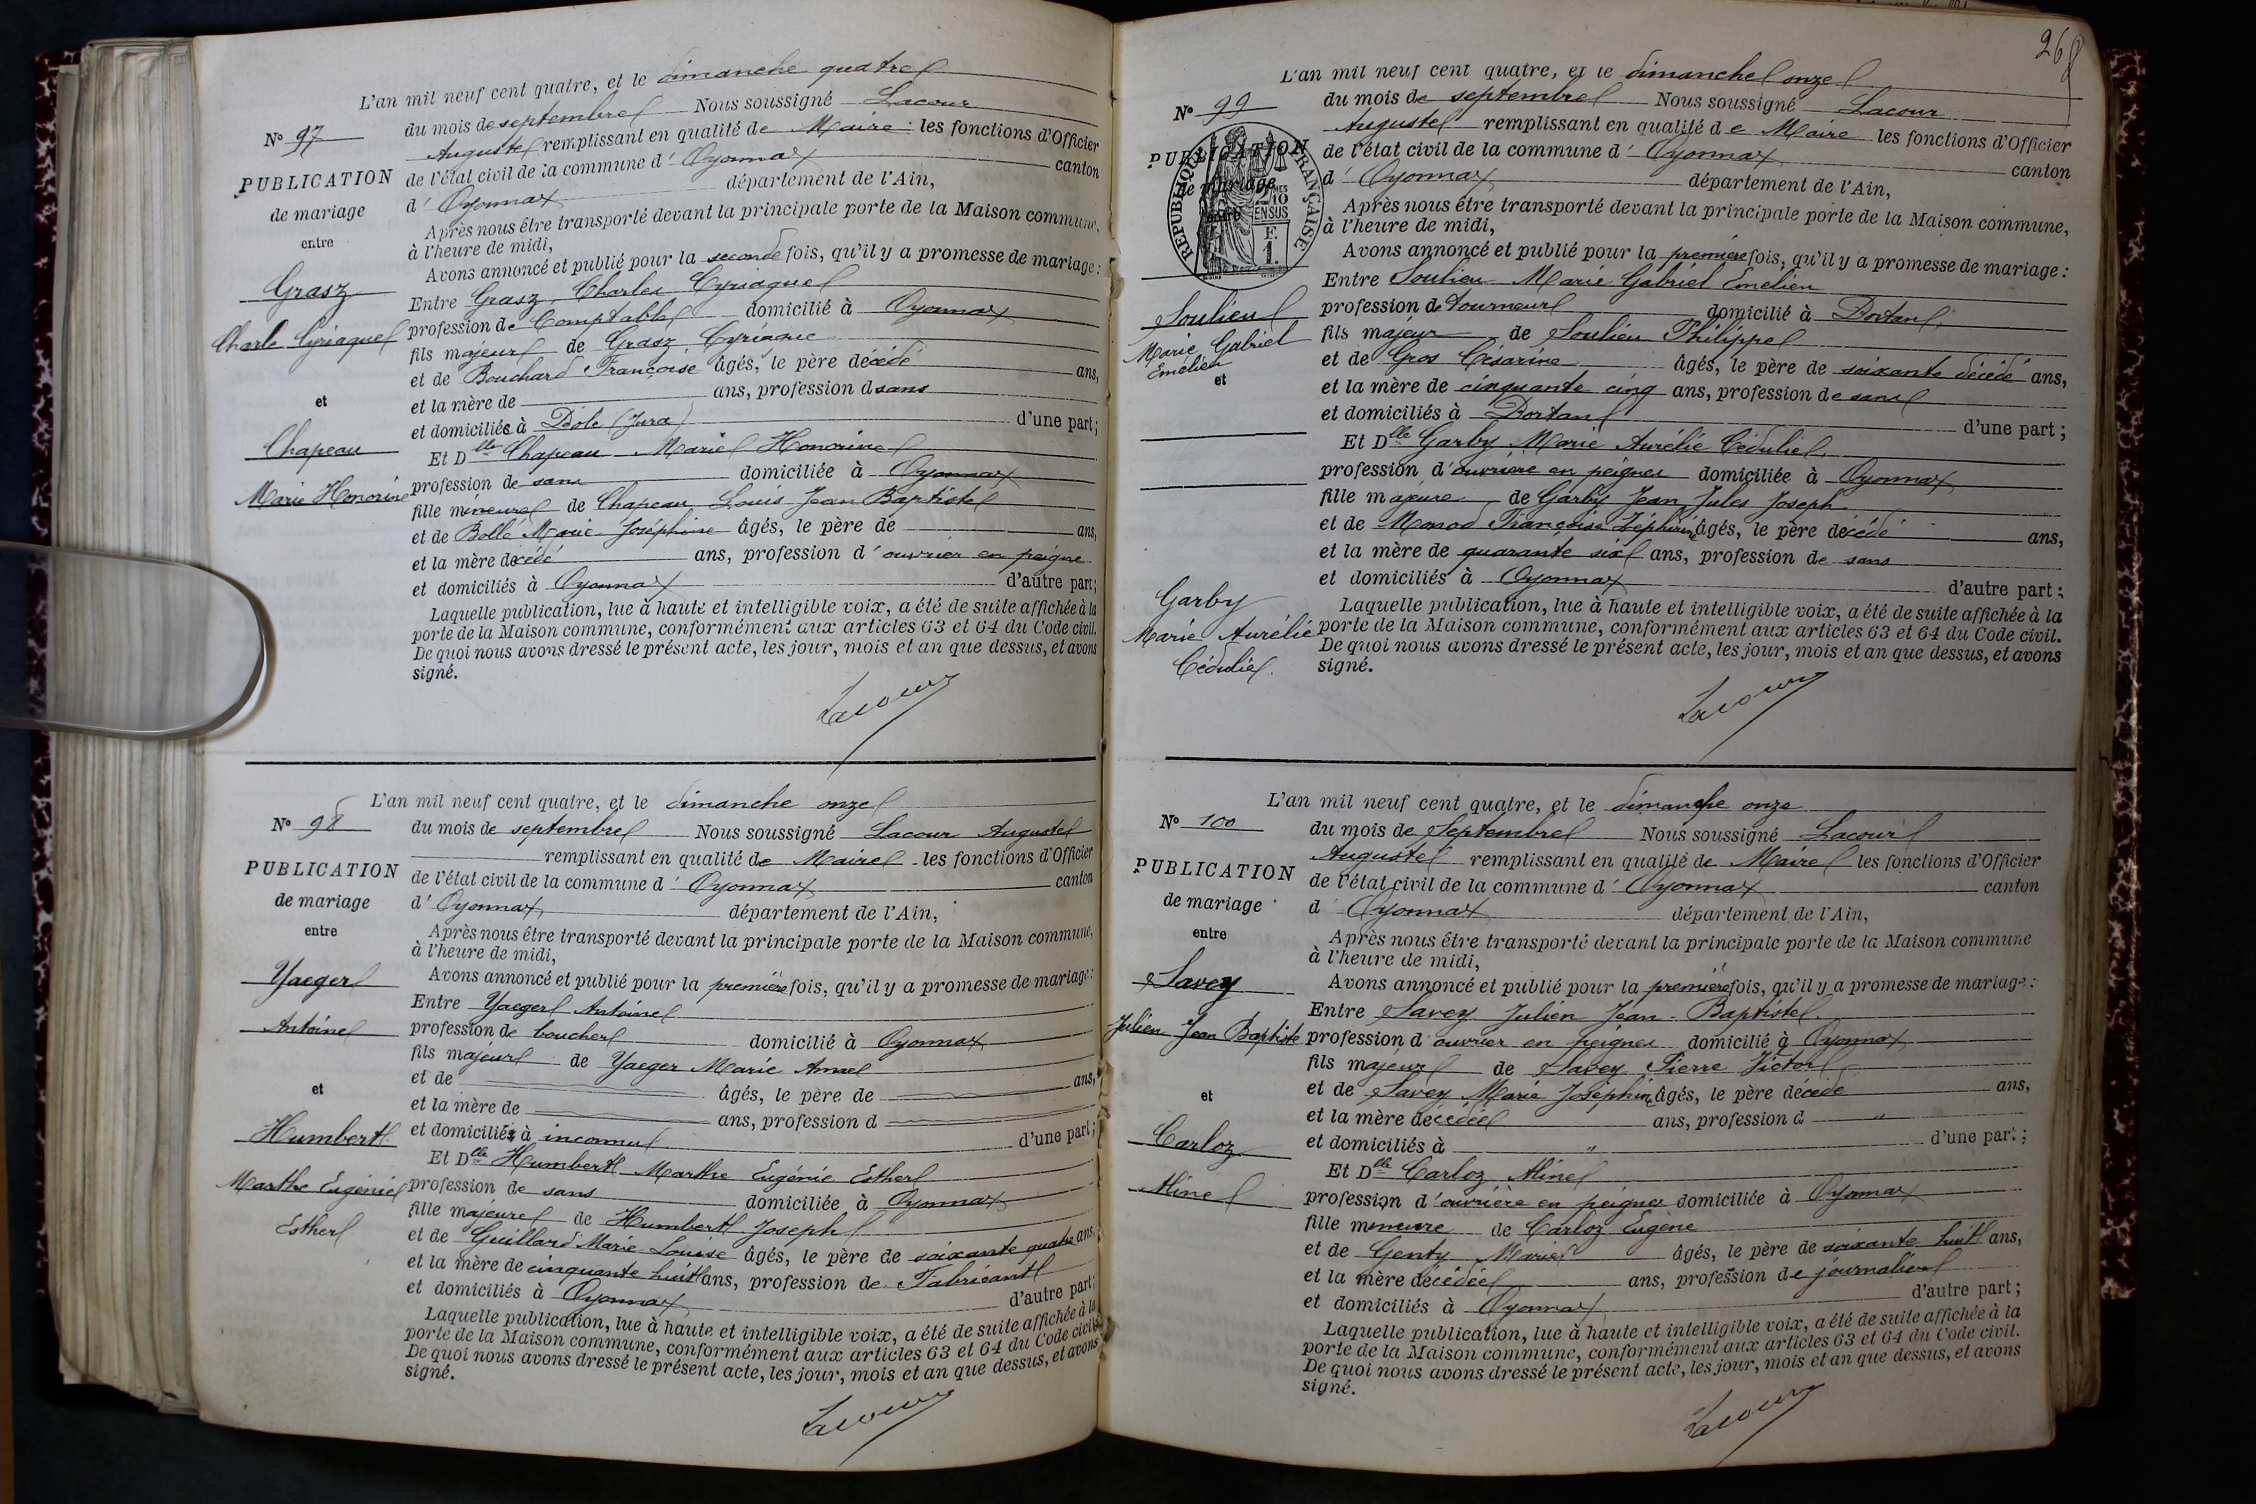 L'an mil neuf cent quatre, et le dimanche quatre
N° 97
du mois de septembre Nous soussigné Lacour
Auguste remplissant en qualité de Maire les fonctions d'Officier
PUBLICATION
de l'état civil de la commune d' Oyonnax canton
de mariage
d' Oyonnax département de l'Ain,
entre
Après nous être transporté devant la principale porte de la Maison commune,
à l'heure de midi,
Avons annoncé et publié pour la seconde fois, qu'il y a promesse de mariage :
Grasz
Entre Grasz, Charles Cyriaque
Charle Cyriaque
profession de Comptable domicilié à Oyonnax
fils majeur de Grasz Cyriaque
et de Bouchard Françoise âgés, le père décédé ans,
et
et la mère de ans, profession d sans
et domiciliés à Dôle (Jura) d'une part ;
Chapeau
Et Dlle Chapeau Marie Honorine
Marie Honorine
profession de sans domiciliée à Oyonnax
fille mineure de Chapeau Louis Jean Baptiste
et de Bollé Marie Joséphine âgés, le père de ans,
et la mère décédé ans, profession d' ouvrier en peigne
et domiciliés à Oyonnax d'autre part ;
Laquelle publication, lue à haute et intelligible voix, a été de suite affichée à la
porte de la Maison commune, conformément aux articles 63 et 64 du Code civil.
De quoi nous avons dressé le présent acte, les jour, mois et an que dessus, et avons
signé.
Lacour
L'an mil neuf cent quatre, et le dimanche onze
N° 98
du mois de septembre Nous soussigné Lacour Auguste
remplissant en qualité de Maire les fonctions d'Officier
PUBLICATION
de l'état civil de la commune d' Oyonnax canton
de mariage
d' Oyonnax département de l'Ain,
entre
Après nous être transporté devant la principale porte de la Maison commune,
à l'heure de midi,
Avons annoncé et publié pour la première fois, qu'il y a promesse de mariage :
Yaeger
Entre Yaeger Antoine
Antoine
profession de boucher domicilié à Oyonnax
fils majeur de Yaeger Marie Anne
et de âgés, le père de ans,
et
et la mère de ans, profession d
et domiciliés à inconnu d'une part ;
Humbert
Et Dlle Humbert Marthe Eugénie Esther
Marthe Eugénie
Esther
profession de sans domiciliée à Oyonnax
fille majeure de Humbert Joseph
et de Guillard Marie Louise âgés, le père de soixante quatre ans,
et la mère de cinquante huit ans, profession de Fabricant
et domiciliés à Oyonnax d'autre part ;
Laquelle publication, lue à haute et intelligible voix, a été de suite affichée à la
porte de la Maison commune, conformément aux articles 63 et 64 du Code civil.
De quoi nous avons dressé le présent acte, les jour, mois et an que dessus, et avons
signé.
Lacour
268
L'an mil neuf cent quatre, et le dimanche onze
N° 99
du mois de septembre Nous soussigné Lacour
Auguste remplissant en qualité de Maire les fonctions d'Officier
PUBLICATION
de l'état civil de la commune d' Oyonnax canton
de mariage
d' Oyonnax département de l'Ain,
entre
RÉPUBLIQUE FRANÇAISE
10
EN SUS
F.
1.
Après nous être transporté devant la principale porte de la Maison commune,
à l'heure de midi,
Avons annoncé et publié pour la première fois, qu'il y a promesse de mariage :
Soulieu
Entre Soulieu Marie Gabriel Emélien
Marie Gabriel
Emélien
profession de tourneur domicilié à Dortan
fils majeur de Soulieu Philippe
et de Gros Césarine âgés, le père de soixante décédé ans,
et
et la mère de cinquante cinq ans, profession de sans
et domiciliés à Dortan d'une part ;
Et Dlle Garby Marie Aurélie Cédulie
profession d'ouvrière en peignes domiciliée à Oyonnax
fille majeure de Garby Jean Jules Joseph
et de Monod Françoise Zéphirine âgés, le père décédé ans,
et la mère de quarante six ans, profession de sans
et domiciliés à Oyonnax d'autre part :
Garby
Marie Aurélie
Cédulie.
Laquelle publication, lue à haute et intelligible voix, a été de suite affichée à la
porte de la Maison commune, conformément aux articles 63 et 64 du Code civil.
De quoi nous avons dressé le présent acte, les jour, mois et an que dessus, et avons
signé.
Lacour
L'an mil neuf cent quatre, et le dimanche onze
N° 100
du mois de Septembre Nous soussigné Lacour
Auguste remplissant en qualité de Maire les fonctions d'Officier
PUBLICATION
de l'état civil de la commune d' Oyonnax canton
de mariage
d Oyonnax département de l'Ain,
entre
Après nous être transporté devant la principale porte de la Maison commune
à l'heure de midi,
Avons annoncé et publié pour la première fois, qu'il y a promesse de mariage :
Savey
Entre Savey Julien Jean-Baptiste
Julien Jean Baptiste
profession d'ouvrier en peignes domicilié à Oyonnax
fils majeur de Savey Pierre Victor
et de Savey Marie Joséphine âgés, le père décédé ans,
et
et la mère décédée ans, profession d "
et domiciliés à " d'une part ;
Carloz
Et Dlle Carloz Aline
Aline
profession d'ouvrière en peignes domiciliée à Oyonnax
fille mineure de Carloz Eugène
et de Genty Marie âgés, le père de soixante huit ans,
et la mère décédée ans, profession de journalier
et domiciliés à Oyonnax d'autre part ;
Laquelle publication, lue à haute et intelligible voix, a été de suite affichée à la
porte de la Maison commune, conformément aux articles 63 et 64 du Code civil.
De quoi nous avons dressé le présent acte, les jour, mois et an que dessus, et avons
signé.
Lacour